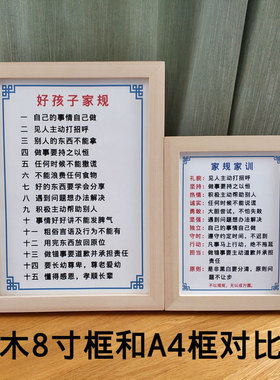 好孩子家规
一 自己的事情自己做
二 见人主动打招呼
三 别人的东西不能拿
四 做事要持之以恒
五 任何时候不能撒谎
六 不能浪费任何食物
七 好的东西要学会分享
八 遇到问题想办法解决
九 积极主动帮助别人
十 事情好好讲不能发脾气
十一 粗俗言语及行为不能有
十二 用完东西放回原位
十三 做错事要道歉并承担责任
十四 要长幼尊卑,尊老爱幼
十五 懂得感恩,孝顺长辈
家规家训
礼貌:见人主动打招呼
坚持:做事要持之以恒
热情:积极主动帮助别人
诚实:任何时候不能撒谎
勇敢:大胆尝试,不怕失败
坚强:遇到问题想办法解决
独立:自己的事情自己做
守时:遵守约定时间,不迟到
行动:凡事马上行动,绝不拖延
担当:做错事要道歉并承担责任
原则:是非黑白要分清,原则问题不让步
不以规矩,无以成方圆。
木8寸框和A4框对比